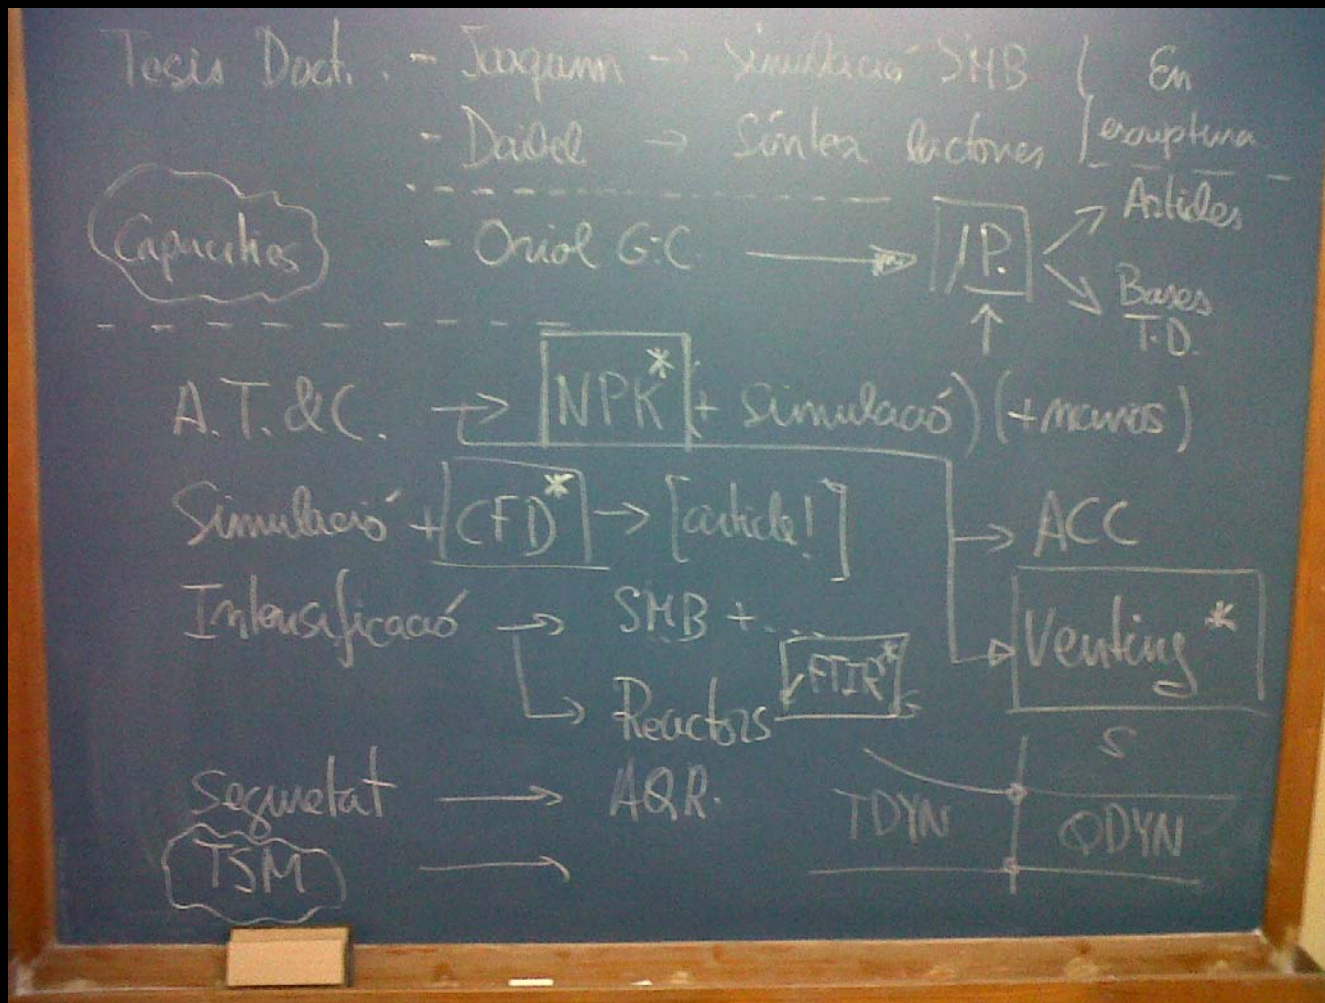 Tesis Doct. - Joaquim → Simulació SMB
- David → Síntesi lactones
En escriptura
Capacities
- Oriol G.C. → I.P.
Articles
Bases T.D.
A.T.&C. → NPK* (+ Simulació) (+ manos)
Simulació + CFD* → [article!]
→ ACC
Intensificació → SMB + ...
Venting*
→ Reactors FTIR*
S
Seguretat → AQR.
TDYN QDYN
TSM →